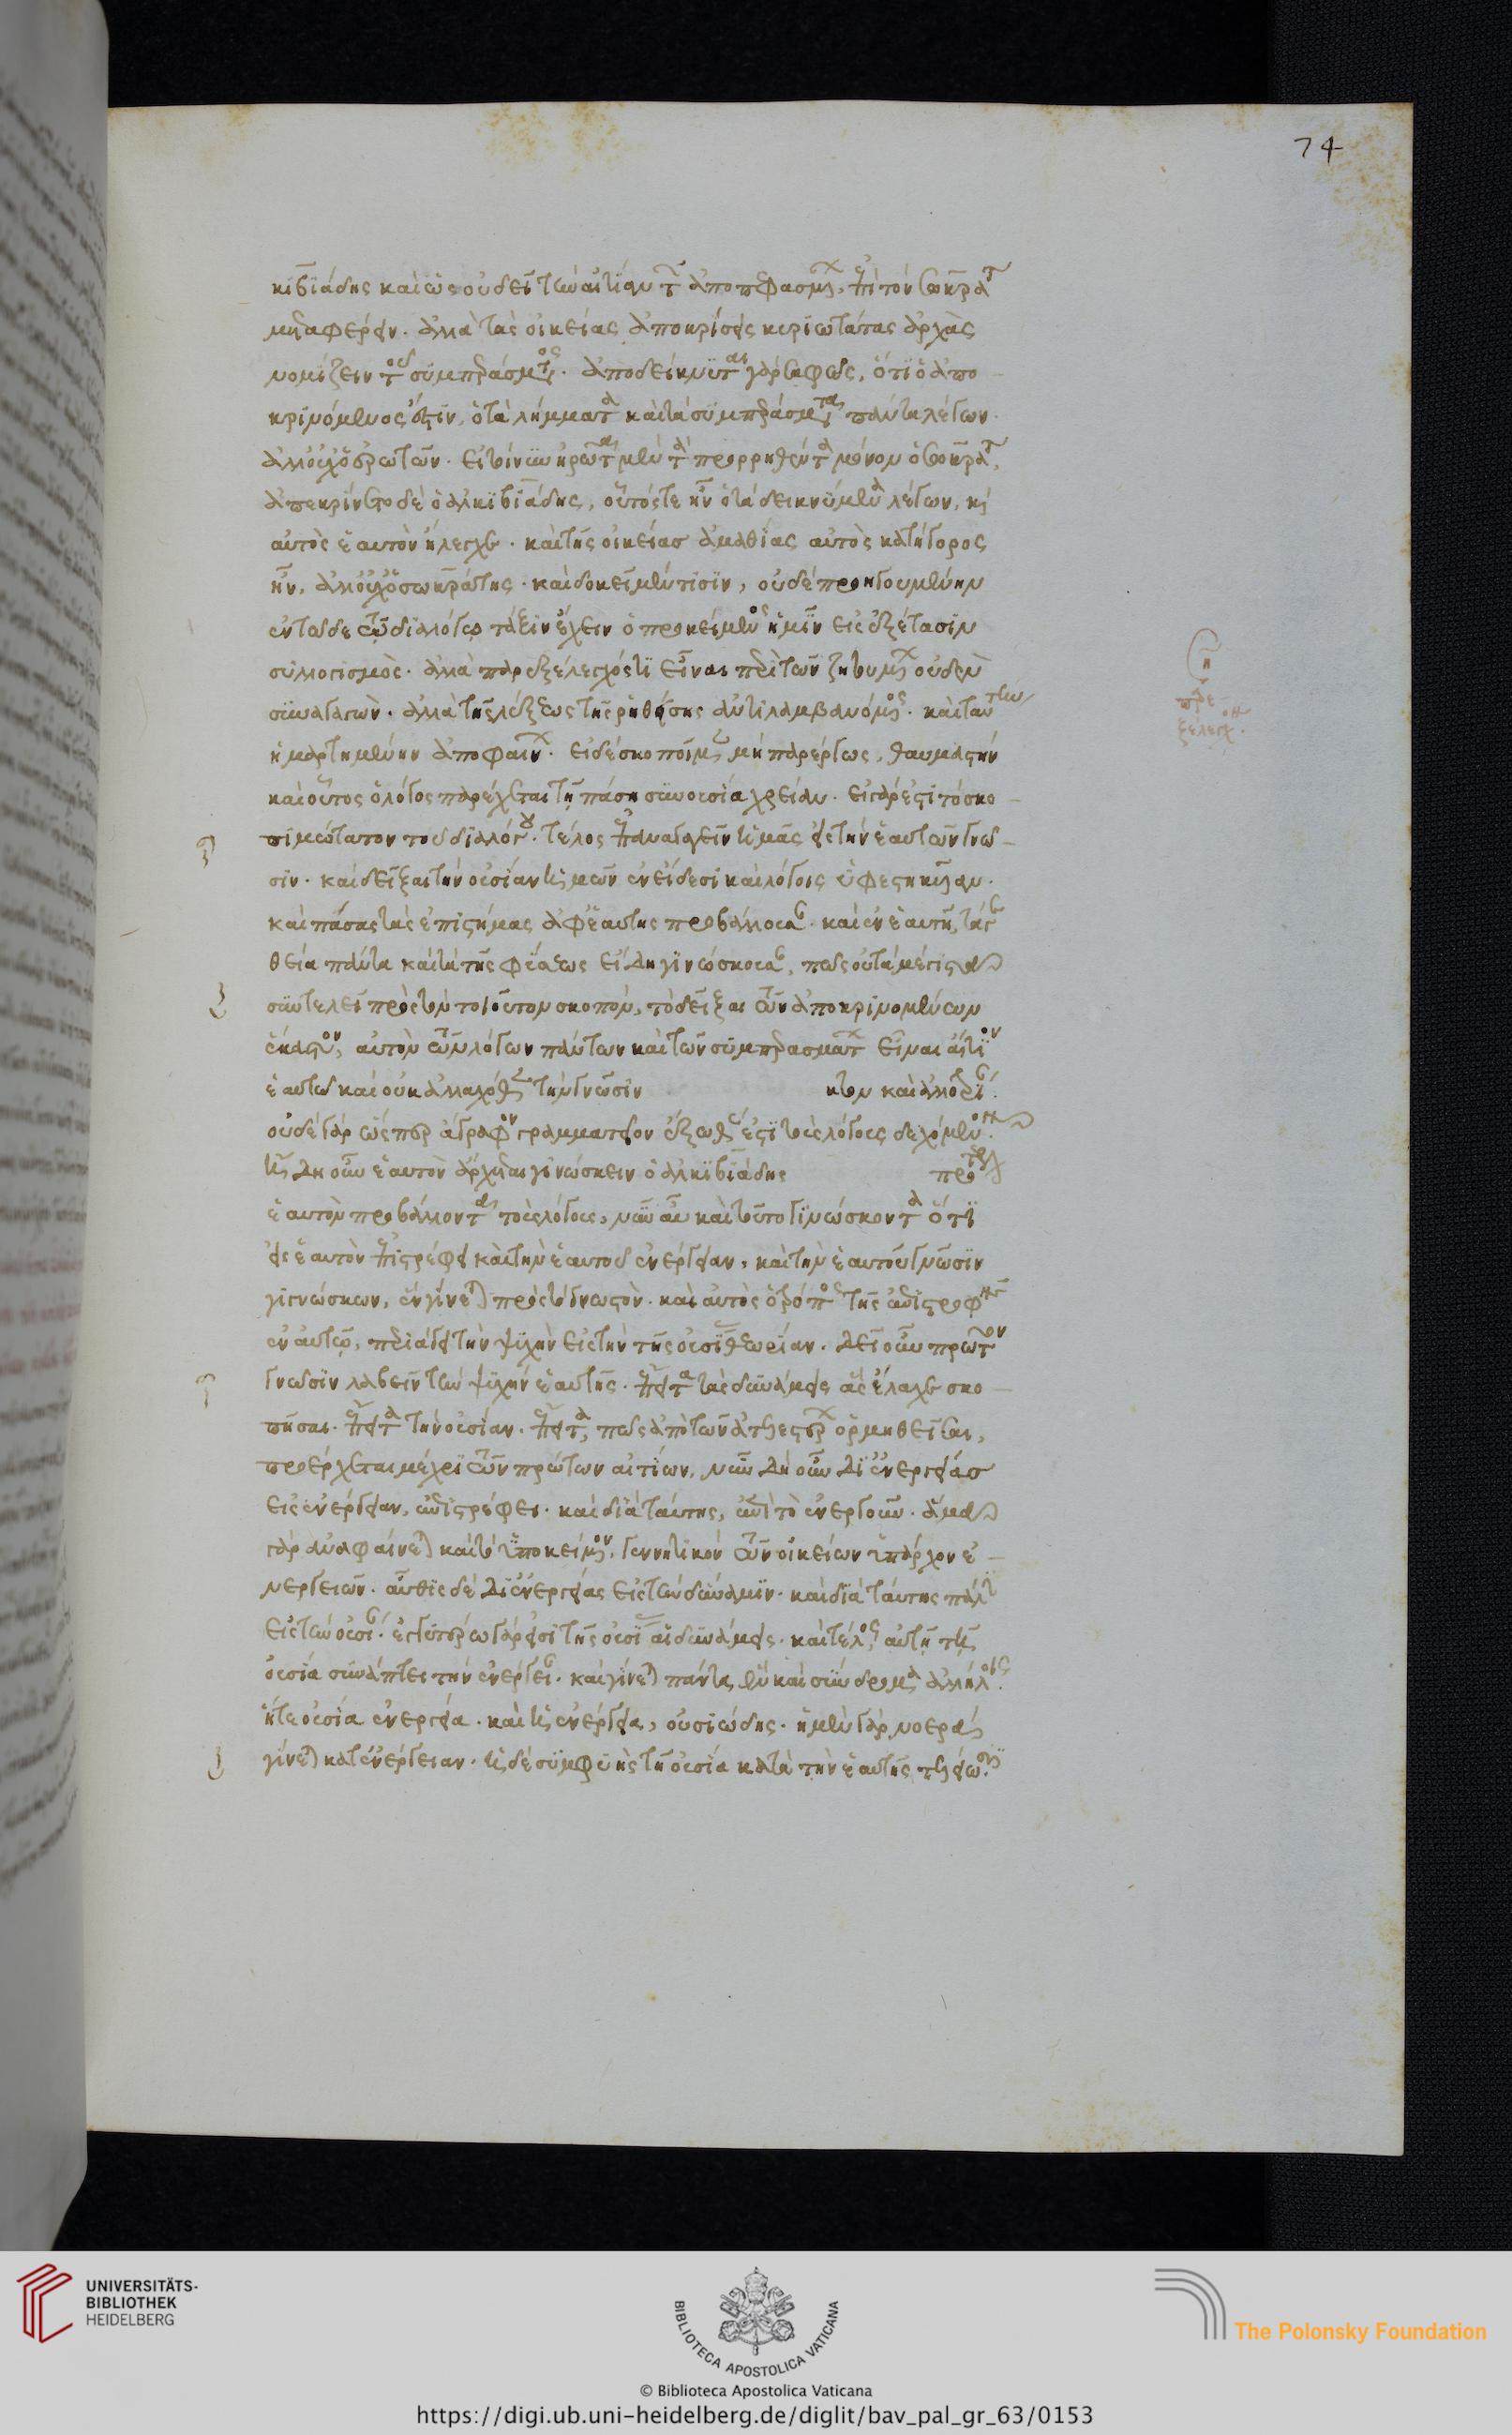 74
κιβιάδης καὶ ὡς οὐ δεῖ τὴν αἰτίαν τῶν ἀποπεφασμένων ἐπὶ τὸν Σωκράτη
μὴ ἀναφέρειν. ἀλλὰ τὰς οἰκείας ἀποκρίσεις κυριωτάτας ἀρχὰς
νομίζειν τοῦ συμπεράσματος. ἀποδείκνυται γὰρ σαφῶς, ὅτι ὁ ἀπο
κρινόμενός ἐστιν, ὁ τὰ λήμματα καὶ τὰ συμπεράσματα πάντα λέγων.
ἀλλ' οὐχ ὁ ἐρωτῶν. εἰ τοίνυν ἠρώτα μὲν τὰ προρρηθέντα μόνον ὁ Σωκράτης,
ἀπεκρίνετο δὲ ὁ ἀλκιβιάδης, οὗτός τε ἦν ὁ τὰ δεικνύμενα λέγων, καὶ
αὐτὸς ἑαυτὸν ἤλεγχε. καὶ τῆς οἰκείας ἀμαθίας αὐτὸς κατήγορος
ἦν, ἀλλ' οὐχ ὁ σωκράτης. καὶ δοκεῖ μέν τισιν, οὐδὲ προηγουμένην
ἐν τῷδε τῷ διαλόγῳ τάξιν ἔχειν ὁ προκείμενος ἡμῖν εἰς ἐξέτασιν
συλλογισμὸς. ἀλλὰ παρεξέλεγχός τι εἶναι περὶ τῶν ζητουμένων οὐδὲν
συναγαγὼν. ἀλλὰ τῆς λέξεως τῆς ῥηθείσης ἀντιλαμβανόμενος. καὶ ταύτην
ἡμαρτημένην ἀποφαίνων. εἰ δὲ σκοποῖμεν μὴ παρέργως, θαυμαστὴν
καὶ οὗτος ὁ λόγος παρέχεται τῇ πάσῃ συνουσίᾳ χρείαν. εἰ γάρ ἐστι τὸ σκο
πιμώτατον τοῦ διαλόγου τέλος ἐπαναγαγεῖν ἡμᾶς εἰς τὴν ἑαυτῶν γνῶ
σιν. καὶ δεῖξαι τὴν οὐσίαν ἡμῶν ἐν εἴδεσι καὶ λόγοις ὑφεστηκυῖαν.
καὶ πάσας τὰς ἐπιστήμας ἀφ' ἑαυτῆς προβάλλουσαν. καὶ ἐν ἑαυτῇ, τά τε
θεῖα πάντα καὶ τὰ τῆς φύσεως εἴδη γινώσκουσαν, πῶς οὐ τὰ μέγιστα
συντελεῖ πρὸς τὸν τοιοῦτον σκοπὸν, τὸ δεῖξαι τῶν ἀποκρινομένων
ἕκαστον, αὐτὸν τῶν λόγων πάντων καὶ τῶν συμπερασμάτων εἶναι αἴτιον
ἑαυτῷ καὶ οὐκ ἀλλαχόθεν τὴν γνῶσιν κτον καὶ ἀλλοτρι.
οὐδὲ γὰρ ὥσπερ ἄγραφον γραμματεῖον ἔξωθέν ἐστι τοὺς λόγους δεχόμενον.
ἤδη οὖν ἑαυτὸν ἄρχεται γινώσκειν ὁ ἀλκιβιάδης προτ
ἑαυτὸν προβάλλοντα τοὺς λόγους, νῦν αὖ καὶ τοῦτο γινώσκοντα ὅτι
εἰς ἑαυτὸν ἐπιστρέφει καὶ τὴν ἑαυτοῦ ἐνέργειαν. καὶ τὴν ἑαυτοῦ γνῶσιν
γιγνώσκων, ἓν γίνεται πρὸς τὸ γνωστὸν. καὶ αὐτὸς ὁ τρόπος τῆς ἐπιστροφῆς
ἐν αὐτῷ, περιάγει τὴν ψυχὴν εἰς τὴν τῆς οὐσίας θεωρίαν. δεῖ οὖν πρῶτον
γνῶσιν λαβεῖν τὴν ψυχὴν ἑαυτῆς. ἔπειτα τὰς δυνάμεις ἃς ἔλαχε σκο
πῆσαι. ἔπειτα τὴν οὐσίαν. ἔπειτα, πῶς ἀπὸ τῶν ἀτελεστέρων ὁρμηθεῖσαι,
προέρχεται μέχρι τῶν πρώτων αἰτίων, νῦν δὴ οὖν δι' ἐνεργείας
εἰς ἐνέργειαν, ἐπιστρέφει. καὶ διὰ ταύτης, ἐπὶ τὸ ἐνεργοῦν. ἅμα
γὰρ ἀναφαίνεται καὶ τὸ ὑποκείμενον, γεννητικὸν τῶν οἰκείων ὑπάρχον ἐ
νεργειῶν. αὖθις δὲ δι' ἐνεργείας εἰς τὴν δύναμιν. καὶ διὰ ταύτης πάλιν
εἰς τὴν οὐσίαν. ἐγγυτέρω γάρ εἰσι τῆς οὐσίας αἱ δυνάμεις. καὶ τέλος, αὐτῇ τῇ
οὐσίᾳ συνάπτει τὴν ἐνέργειαν. καὶ γίνεται πάντα, ἓν καὶ σύνδρομα ἀλλήλοις.
ἥ τε οὐσία ἐνέργεια. καὶ ἡ ἐνέργεια, οὐσιώδης. ἡ μὲν γὰρ νοερὰ
γίνεται κατ' ἐνέργειαν. ἡ δὲ συμφυὴς τῇ οὐσίᾳ κατὰ τὴν ἑαυτῆς τελείωσιν
UNIVERSITÄTS-
BIBLIOTHEK
HEIDELBERG
BIBLIOTECA APOSTOLICA VATICANA
The Polonsky Foundation
© Biblioteca Apostolica Vaticana
https://digi.ub.uni-heidelberg.de/diglit/bav_pal_gr_63/0153